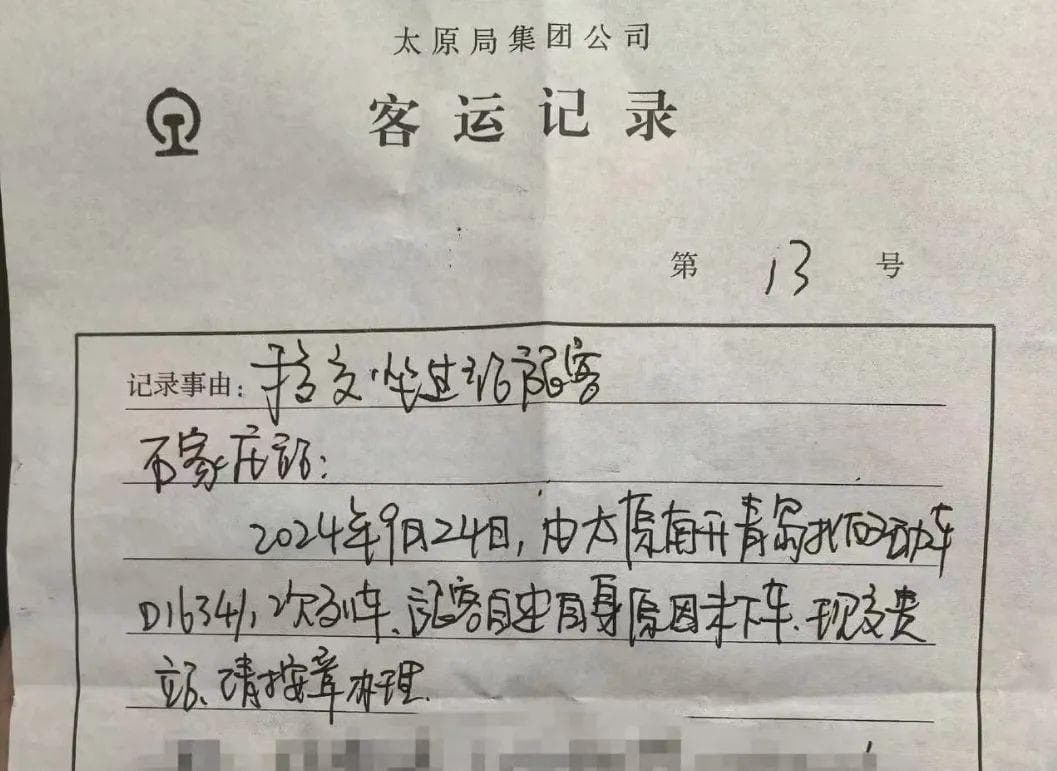 太原局集团公司
客运记录
第 13 号
记录事由: 移交坐过站旅客
石家庄站:
2024年9月24日,由太原南开青岛北的动车
D1634/1次列车、旅客自述自身原因未下车、现交贵
站、请按章办理.